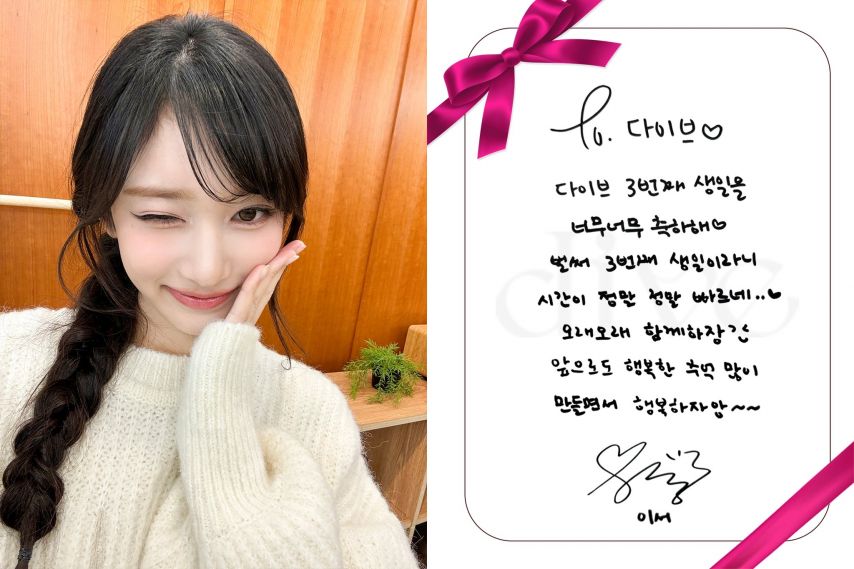 To. 다이브♡
다이브 3번째 생일을
너무너무 축하해♡
벌써 3번째 생일이라니
시간이 정말 정말 빠르네..♥
오래오래 함께하장ㅎ
앞으로도 행복한 추억 많이
만들면서 행복하자앙~~
이서
dive